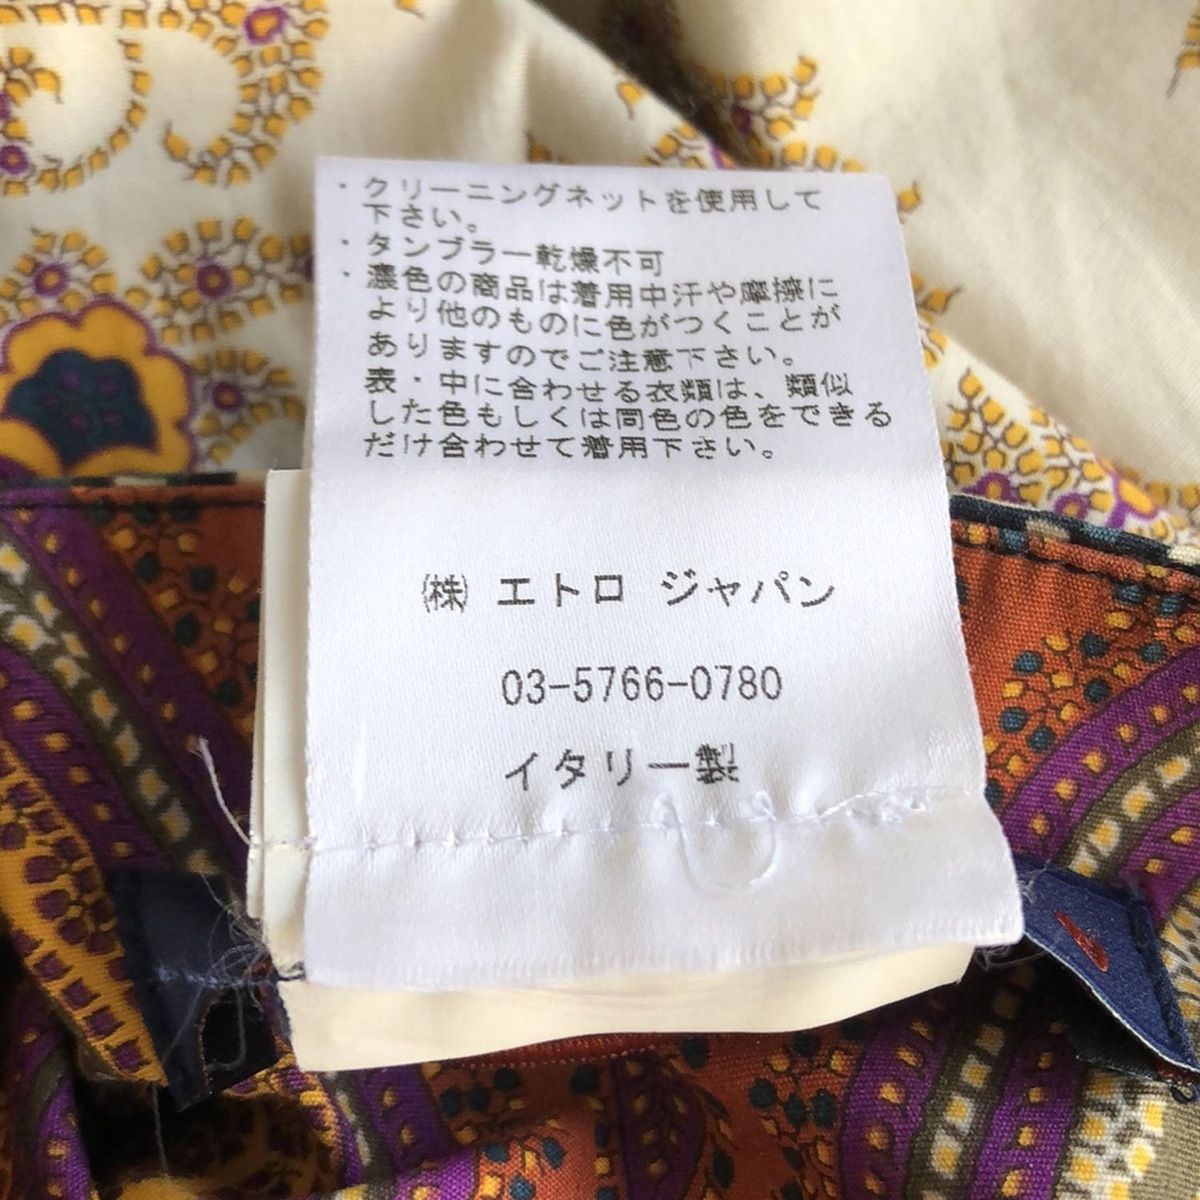 ・クリーニングネットを使用して
下さい。
・タンブラー乾燥不可
・濃色の商品は着用中汗や摩擦に
より他のものに色がつくことが
ありますのでご注意下さい。
表・中に合わせる衣類は、類似
した色もしくは同色の色をできる
だけ合わせて着用下さい。
㈱ エトロ ジャパン
03-5766-0780
イタリー製